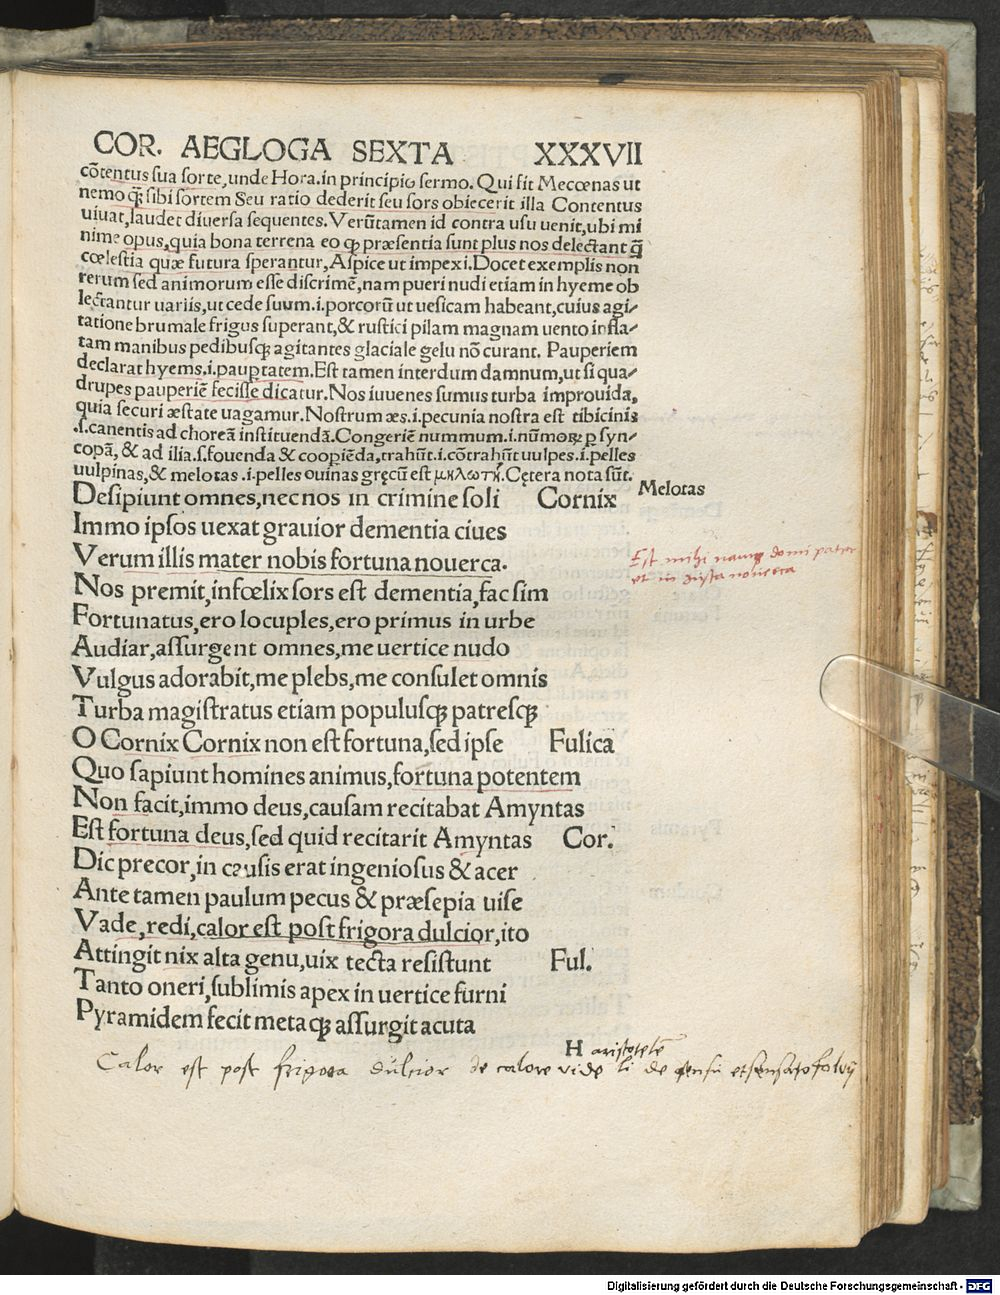 COR. AEGLOGA SEXTA XXXVII
cōtentus sua sorte, unde Hora. in principio sermo. Qui fit Mecœnas ut
nemo ꝙ sibi sortem Seu ratio dederit seu sors obiecerit illa Contentus
uiuat, laudet diuersa sequentes. Verūtamen id contra usu uenit, ubi mi
nime opus, quia bona terrena eo ꝙ præsentia sunt plus nos delectant q̄
cœlestia quæ futura sperantur, Aspice ut impexi. Docet exemplis non
rerum sed animorum esse discrimē, nam pueri nudi etiam in hyeme ob
lectantur uariis, ut cede suum .i. porcorū ut uesicam habeant, cuius agi/
tatione brumale frigus superant, & rustici pilam magnam uento infla/
tam manibus pedibusq; agitantes glaciale gelu nō curant. Pauperiem
declarat hyems .i. paupertatem. Est tamen interdum damnum, ut si qua/
drupes pauperiē fecisse dicatur. Nos iuuenes sumus turba improuida,
quia securi æstate uagamur. Nostrum æs .i. pecunia nostra est tibicinis
.s. canentis ad choreā instituendā. Congeriē nummum .i. nūmoꝝ p syn/
copā, & ad ilia .s. fouenda & coopiēda, trahūt .i. cōtrahūt uulpes .i. pelles
uulpinas, & melotas .i. pelles ouinas gręcū est μηλωτή. Cętera nota sūt.
Desipiunt omnes, nec nos in crimine soli Cornix Melotas
Immo ipsos uexat grauior dementia ciues
Verum illis mater nobis fortuna nouerca.
Est mihi namq domi pater
et in iusta noverca
Nos premit, infœlix sors est dementia, fac sim
Fortunatus, ero locuples, ero primus in urbe
Audiar, assurgent omnes, me uertice nudo
Vulgus adorabit, me plebs, me consulet omnis
Turba magistratus etiam populusq; patresq;
O Cornix Cornix non est fortuna, sed ipse Fulica
Quo sapiunt homines animus, fortuna potentem
Non facit, immo deus, causam recitabat Amyntas
Est fortuna deus, sed quid recitarit Amyntas Cor.
Dic precor, in causis erat ingeniosus & acer
Ante tamen paulum pecus & præsepia uise
Vade, redi, calor est post frigora dulcior, ito
Attingit nix alta genu, uix tecta resistunt Ful.
Tanto oneri, sublimis apex in uertice furni
Pyramidem fecit metaq; assurgit acuta
H aristotelē
Calor est post frigora dulcior de calore vide li de sensu et sensato
Digitalisierung gefördert durch die Deutsche Forschungsgemeinschaft - DFG